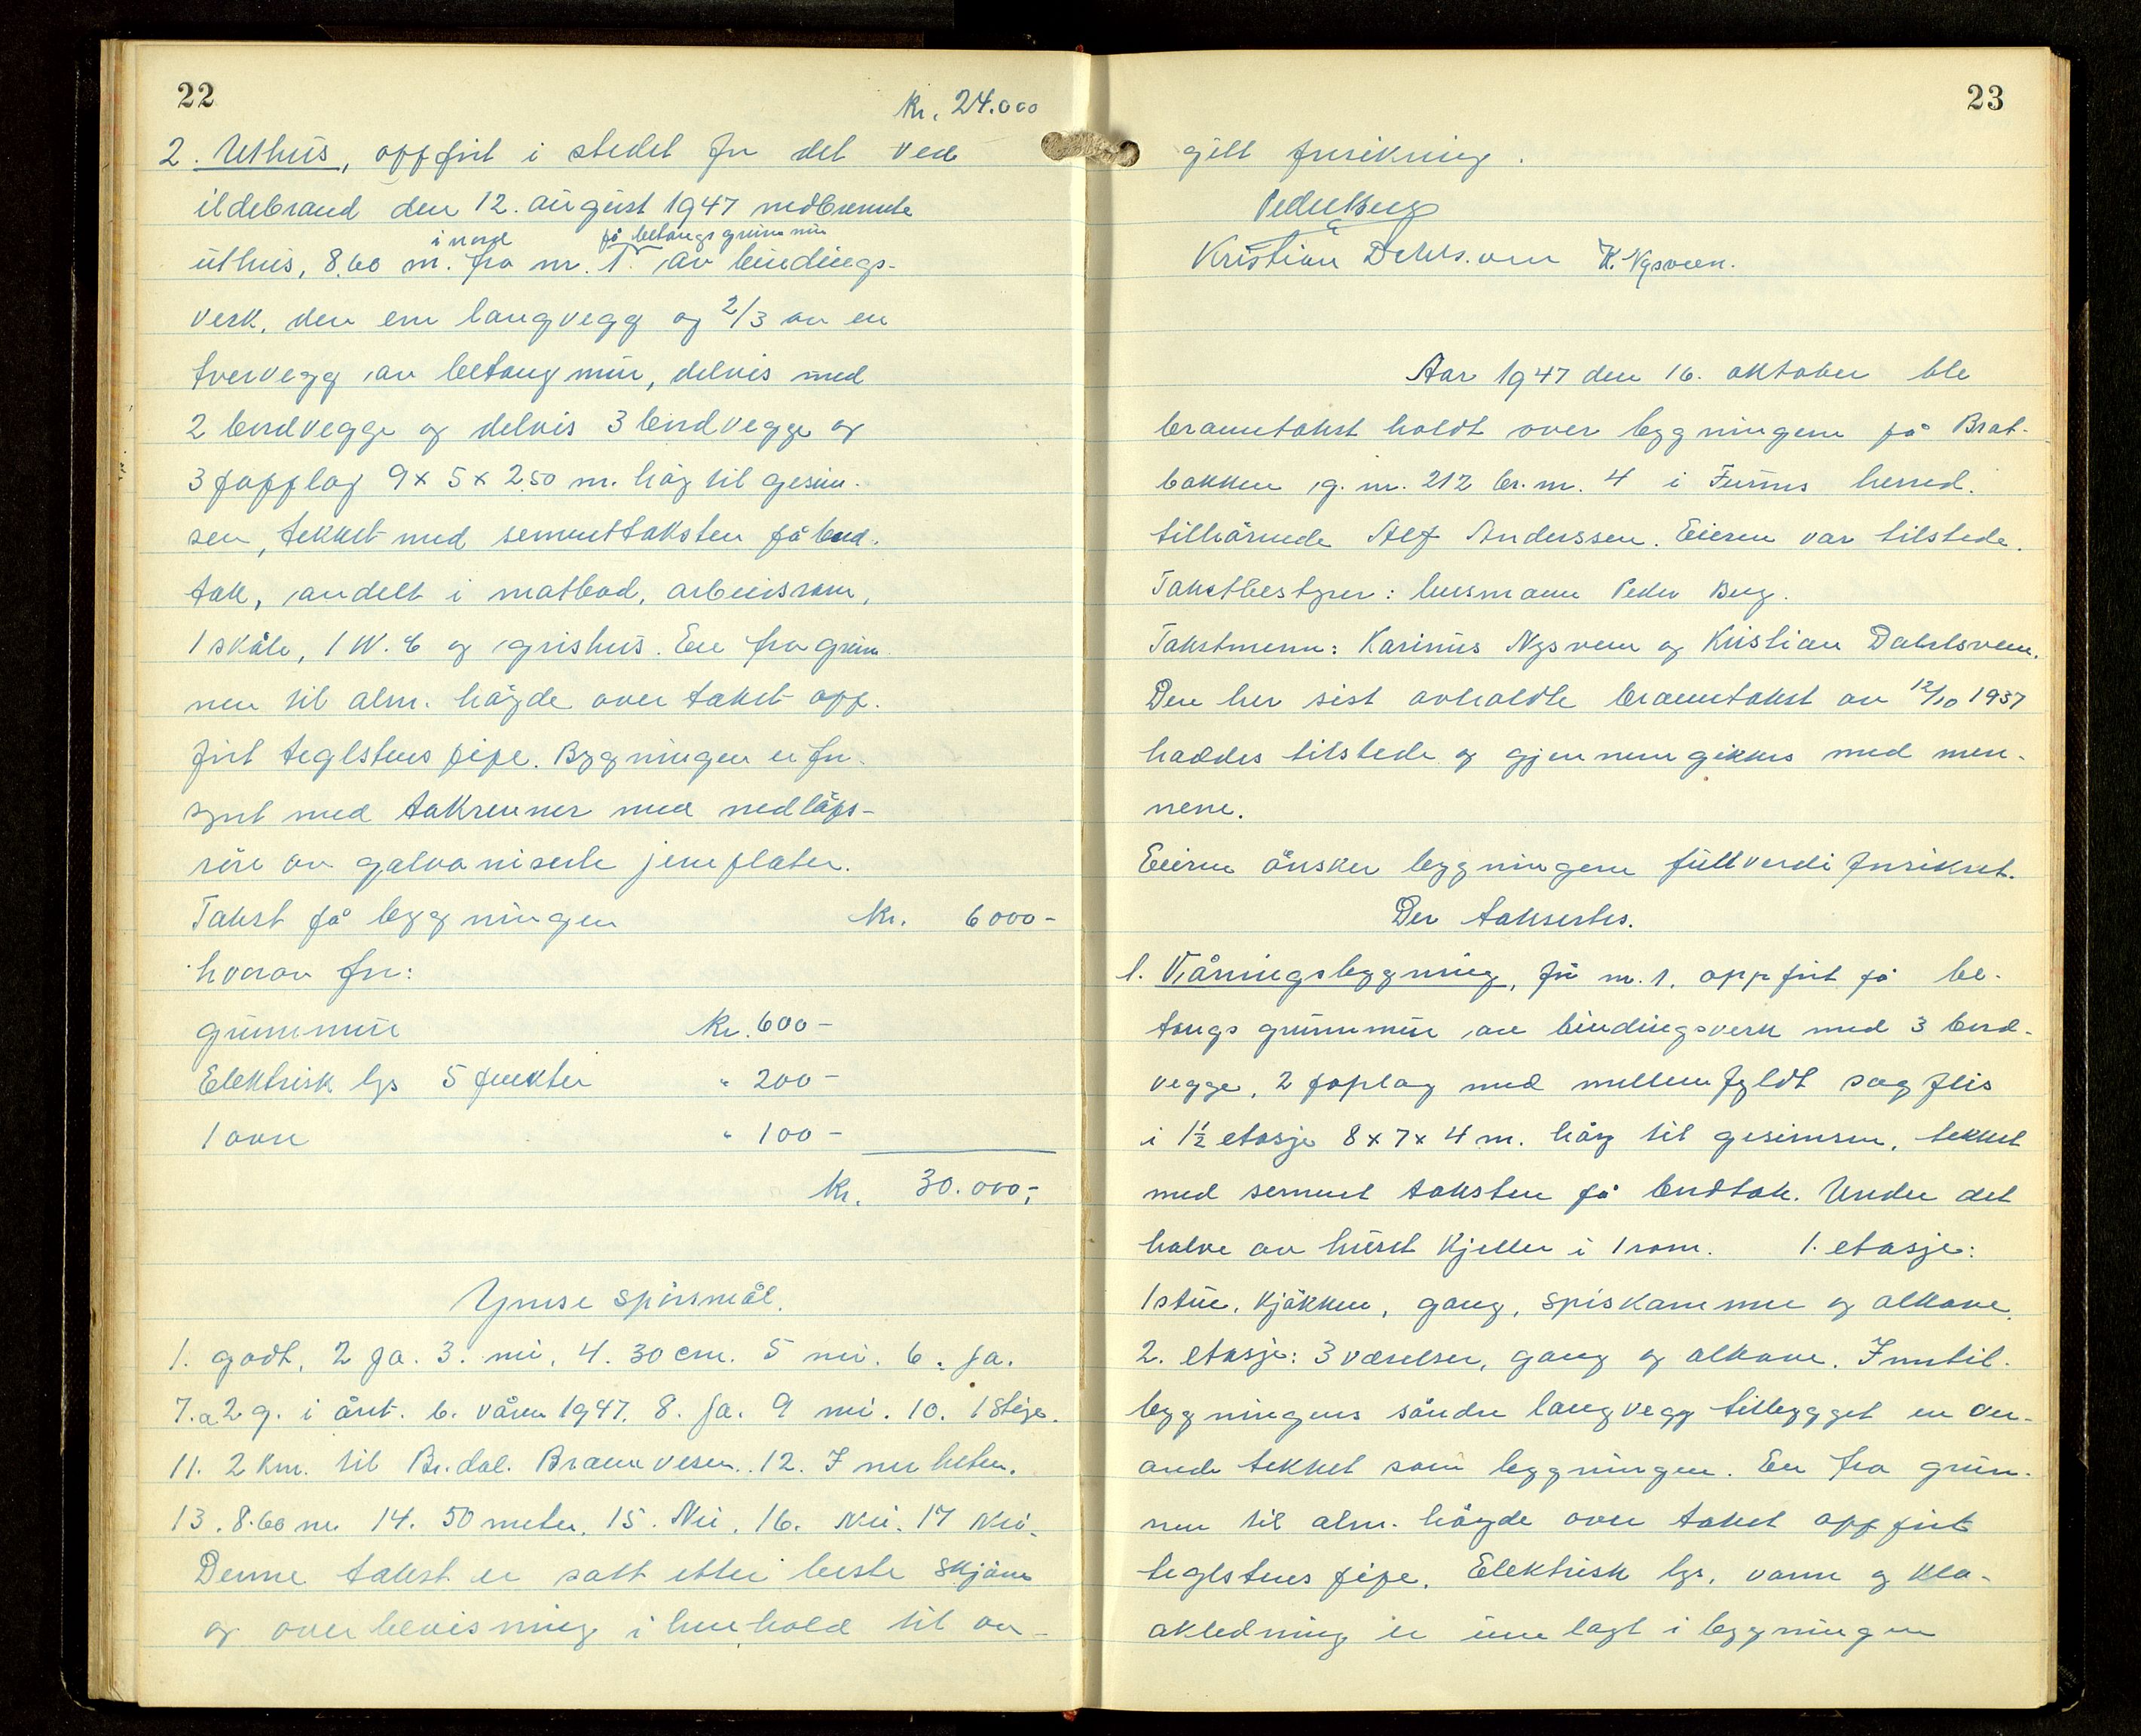 22
Kr. 24.000
2. Uthus, oppført i stedet for det ved
ildebrand den 12. august 1947 nedbrente
i nord på betongs grunnmur
uthus, 8.60 m. fra nr. 1. av bindings-
verk, den ene langvegg og 2/3 av en
tvervegg av betong mur, delvis med
2 bordvegge og delvis 3 bordvegge og
3 papplag 9 x 5 x 2.50 m. høg til gesim-
sen, tekket med sementtaksten på bord-
tak, avdelt i matbod, arbeisrom,
1 skåle, 1 W.C og grishus. En fra grun-
nen til alm. høgde over taket opp-
ført teglstens pipe. Bygningen er for-
synt med takrenner med nedløps-
rør av galvaniserte jernplater.
Takst på bygningen Kr. 6000-
hvorav for:
grunnmur Kr. 600-
Elektrisk lys 5 punkter " 200-
1 ovn " 100-
Kr. 30.000,-
Ymse spørsmål.
1. godt, 2 ja. 3. nei, 4. 30 cm. 5 nei. 6. ja.
7. a 2 g. i året. b. våren 1947. 8. ja. 9 nei. 10. 1 stige.
11. 2 km. til Br.dal. Brannvesen. 12. I nærheten.
13. 8.60 m. 14. 50 meter. 15. Nei. 16. Nei. 17 Nei.
Denne takst er satt etter beste skjønn
og overbevisning i henhold til av-
23
gitt forsikring.
Peder Berg
Kristian Dahls.veen K. Nysveen.
Aar 1947 den 16. oktober ble
branntakst holdt over bygningene på Brat-
bakken g. nr. 212 br. nr. 4 i Furnes herred.
tilhørende Alf Anderssen. Eieren var tilstede.
Takstbestyrer: lensmann Peder Berg.
Takstmenn: Karinus Nysveen og Kristian Dahlsveen.
Den her sist avholdte branntakst av 12/10 1937
haddes tilstede og gjennemgikkes med men-
nene.
Eieren ønsker bygningene fullverdi forsikret.
Der taksertes.
1. Våningsbygning, før nr. 1, oppført på be-
tongs grunnmur av bindingsverk med 3 bord-
vegge, 2 paplag med mellemfyldt sagflis
i 1½ etasje 8 x 7 x 4 m. høg til gesimsen, tekket
med sement taksten på bordtak. Under det
halve av huset kjeller i 1 rom. 1. etasje:
1 stue, kjøkken, gang, spiskammer og alkove.
2. etasje: 3 værelser, gang og alkove. Inntil
bygningens søndre langvegg tilbygget en ver-
anda tekket som bygningen. En fra grun-
nen til alm. høgde over taket oppført
teglstens pipe. Elektrisk lys, vann og klo-
akledning er innlagt i bygningen